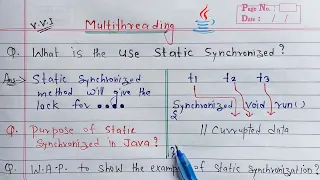 V.V.I
Multithreading
Java
Page No.
Date: / /
Q. What is the use Static Synchronized?
Ans→ Static Synchronized
method will give the
lock for ....
t1 t2 t3
Synchronized void run()
{
// Currupted data
Q. Purpose of Static
Synchronized in Java?
Q. W.A.P. to show the example of Static Synchronization?